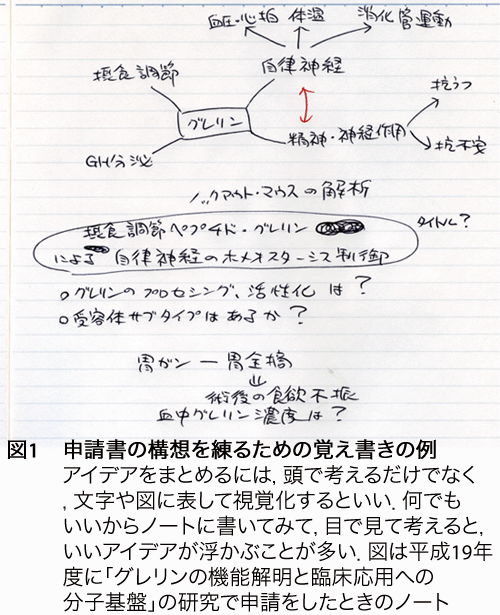 血圧・心拍 体温 消化管運動
摂食調節 自律神経
グレリン
抗うつ
精神・神経作用
GH分泌 抗不安
ノックアウト・マウスの解析
摂食調節ペプチド・グレリン タイトル?
による 自律神経のホメオスターシス制御
○グレリンのプロセシング、活性化は?
○受容体サブタイプはあるか?
胃ガン ― 胃全摘
術後の食欲不振
血中グレリン濃度は?
図1 申請書の構想を練るための覚え書きの例
アイデアをまとめるには,頭で考えるだけでなく
,文字や図に表して視覚化するといい.何でも
いいからノートに書いてみて,目で見て考えると,
いいアイデアが浮かぶことが多い.図は平成19年
度に「グレリンの機能解明と臨床応用への
分子基盤」の研究で申請をしたときのノート